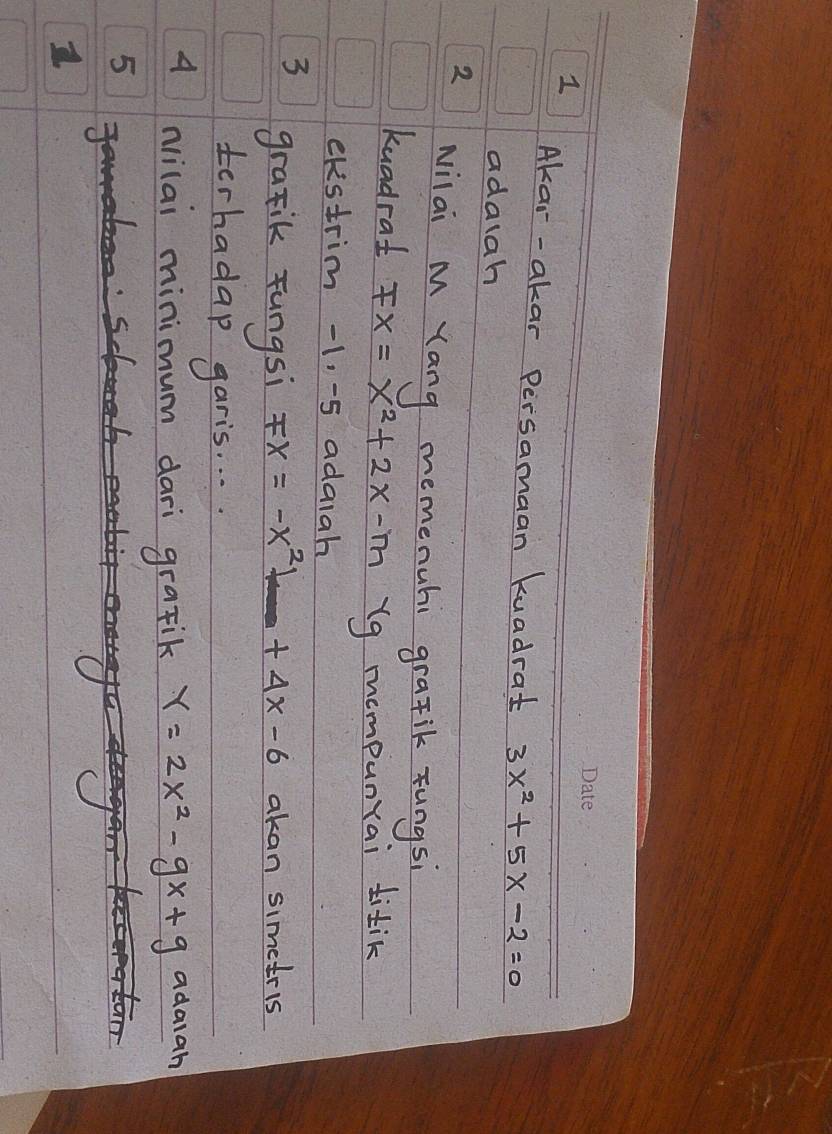 Date
1 Akar-akar Persamaan kuadrat 3x² + 5x - 2 = 0
adalah
2 Nilai M Yang memenuhi grafik fungsi
kuadrat Fx = x² + 2x - m Yg memPunYai titik
ekstrim -1, -5 adalah
3 grafik fungsi Fx = -x² + 4x - 6 akan simetris
terhadap garis....
4 Nilai minimum dari grafik Y = 2x² - 9x + 9 adalah
5
1